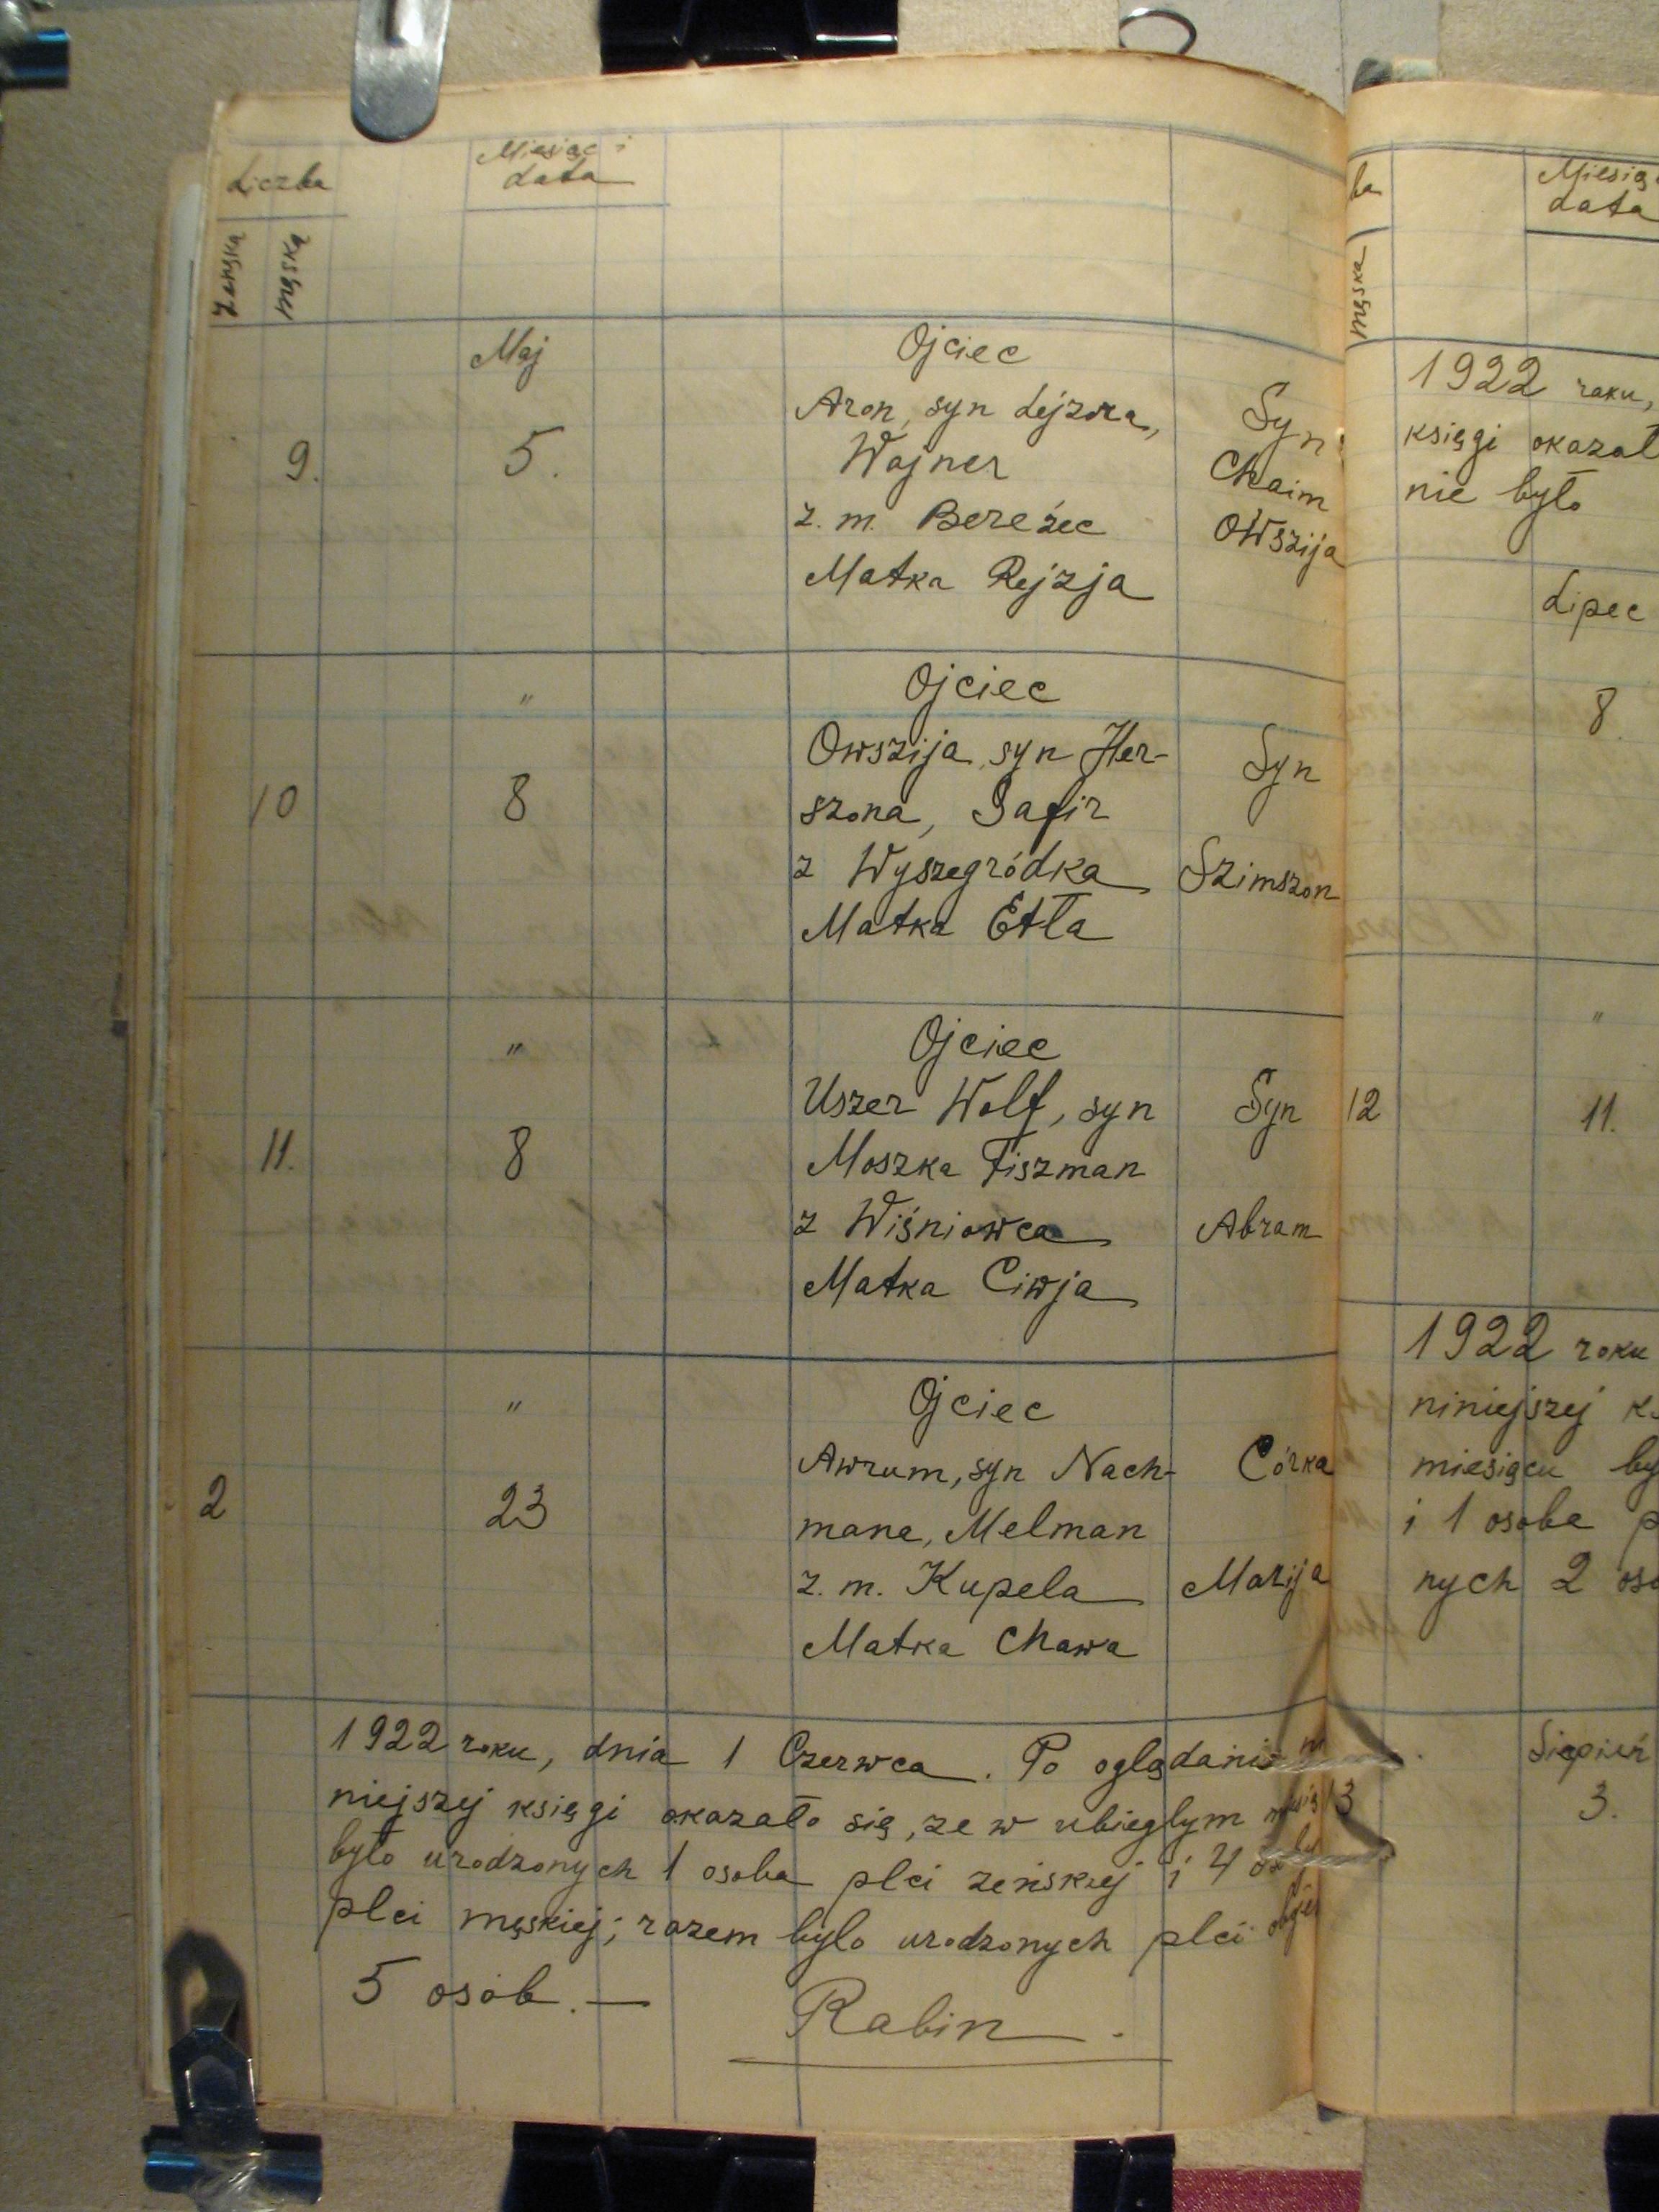 Liczba
Miesiąc i
data
żeńska
męska
Maj
9.
5.
Ojciec
Aron, syn Lejzora,
Wajner
z. m. Bereżec
Matka Rejzja
Syn
Chaim
Owszija
"
10
8
Ojciec
Owszija, syn Her-
szona, Safir
z Wyszegródka
Matka Etla
Syn
Szimszon
"
11.
8
Ojciec
Uszer Wolf, syn
Moszka Fiszman
z Wiśniowca
Matka Ciwja
Syn
Abram
"
2
23
Ojciec
Awrum, syn Nach-
mana, Melman
z. m. Kupela
Matka Chawa
Córka
Marija
1922 roku, dnia 1 Czerwca. Po oglądaniu ni
niejszej księgi okazało się, że w ubiegłym
było urodzonych 1 osoba płci żeńskiej i 4 osoby
płci męskiej; razem było urodzonych płci obojej
5 osób. —
Rabin.
ba
męska
Miesiąc
data
1922 roku,
księgi okazał
nie było
Lipiec
8.
"
12
11.
1922 roku
niniejszej k
miesiącu by
i 1 osoba p
nych 2 oso
Sierpień
13
3.